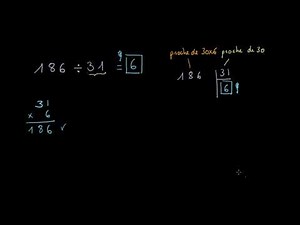 proche de 30x6 proche de 30
186 ÷ 31 = 6
?
186 31
6 ?
31
x 6
186 ✓